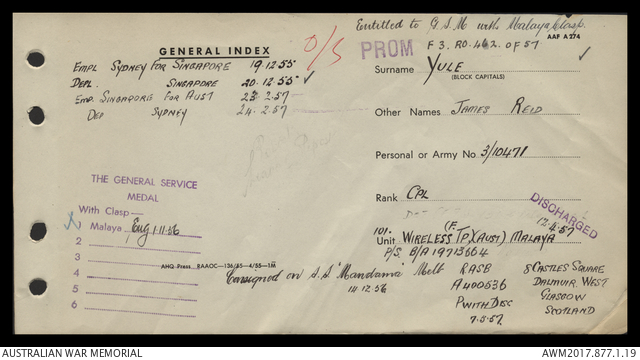 Entitled to G.S.M with Malaya Clasp.
AAF A274
GENERAL INDEX
O/S
PROM F3. RO. 462. OF 57
EMPL SYDNEY FOR SINGAPORE 19.12.55
DEPL. SINGAPORE 20.12.55
EMP. SINGAPORE FOR AUST 23.2.57
DEP SYDNEY 24.2.57
Surname YULE
(BLOCK CAPITALS)
Other Names JAMES REID
Personal or Army No. 3/10471
Rank CPL
DISCHARGED
12.4.57
THE GENERAL SERVICE
MEDAL
With Clasp—
Malaya Eng 1.11.56
2
3
4
5
6
101.
(F.
Unit WIRELESS TP.)(AUST) MALAYA
P/S. B/A 19713664
AHQ Press. RAAOC—136/55—4/55—1M
Consigned on S.S. "Mandama" Melb
14.12.56
RASB
A400536
PWITH DISC
7.5.57
8 CASTLES SQUARE
DALMUIR. WEST
GLASGOW
SCOTLAND
AUSTRALIAN WAR MEMORIAL
AWM2017.877.1.19